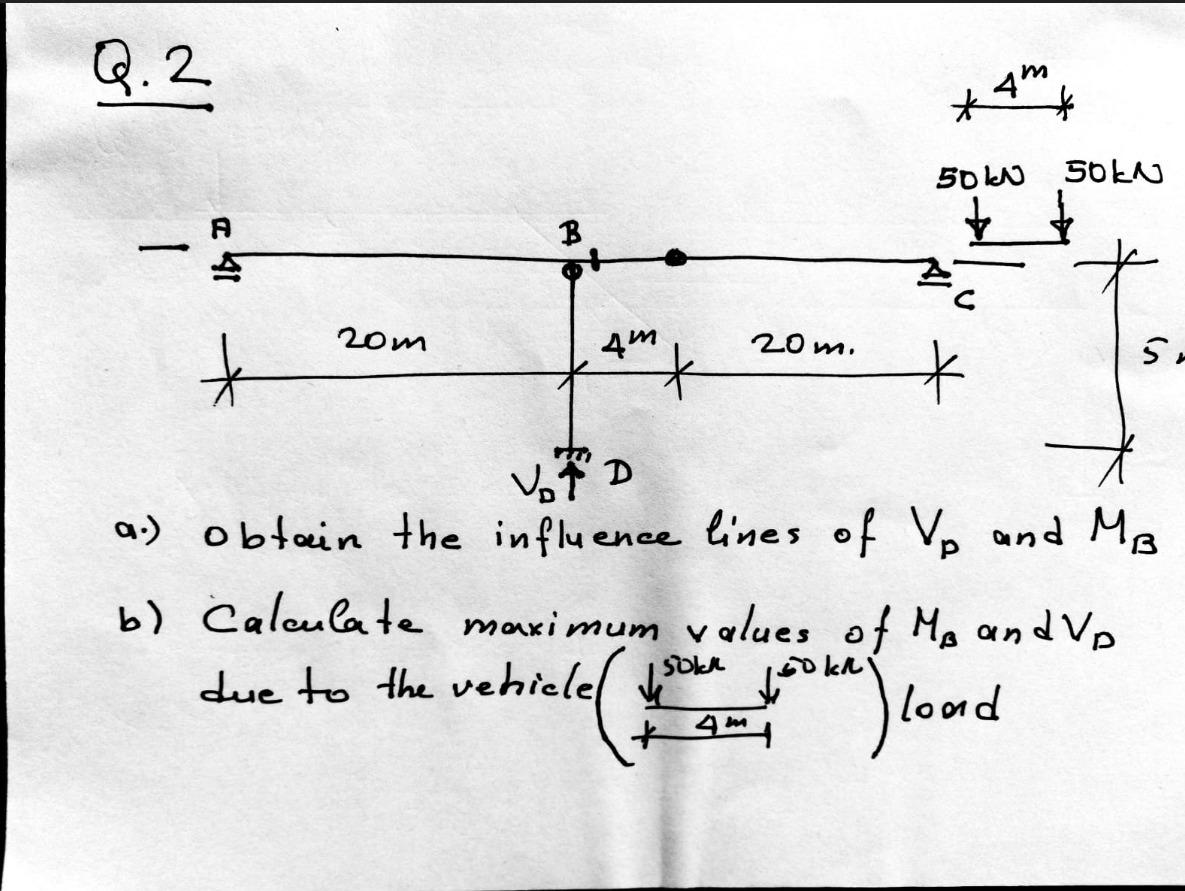 Q.2
4m
50kN 50kN
A B
C
20m 4m 20m. 5
VD D
a.) obtain the influence lines of VD and MB
b) Calculate maximum values of MB and VD
due to the vehicle ( 50kN 50kN ) load
4m